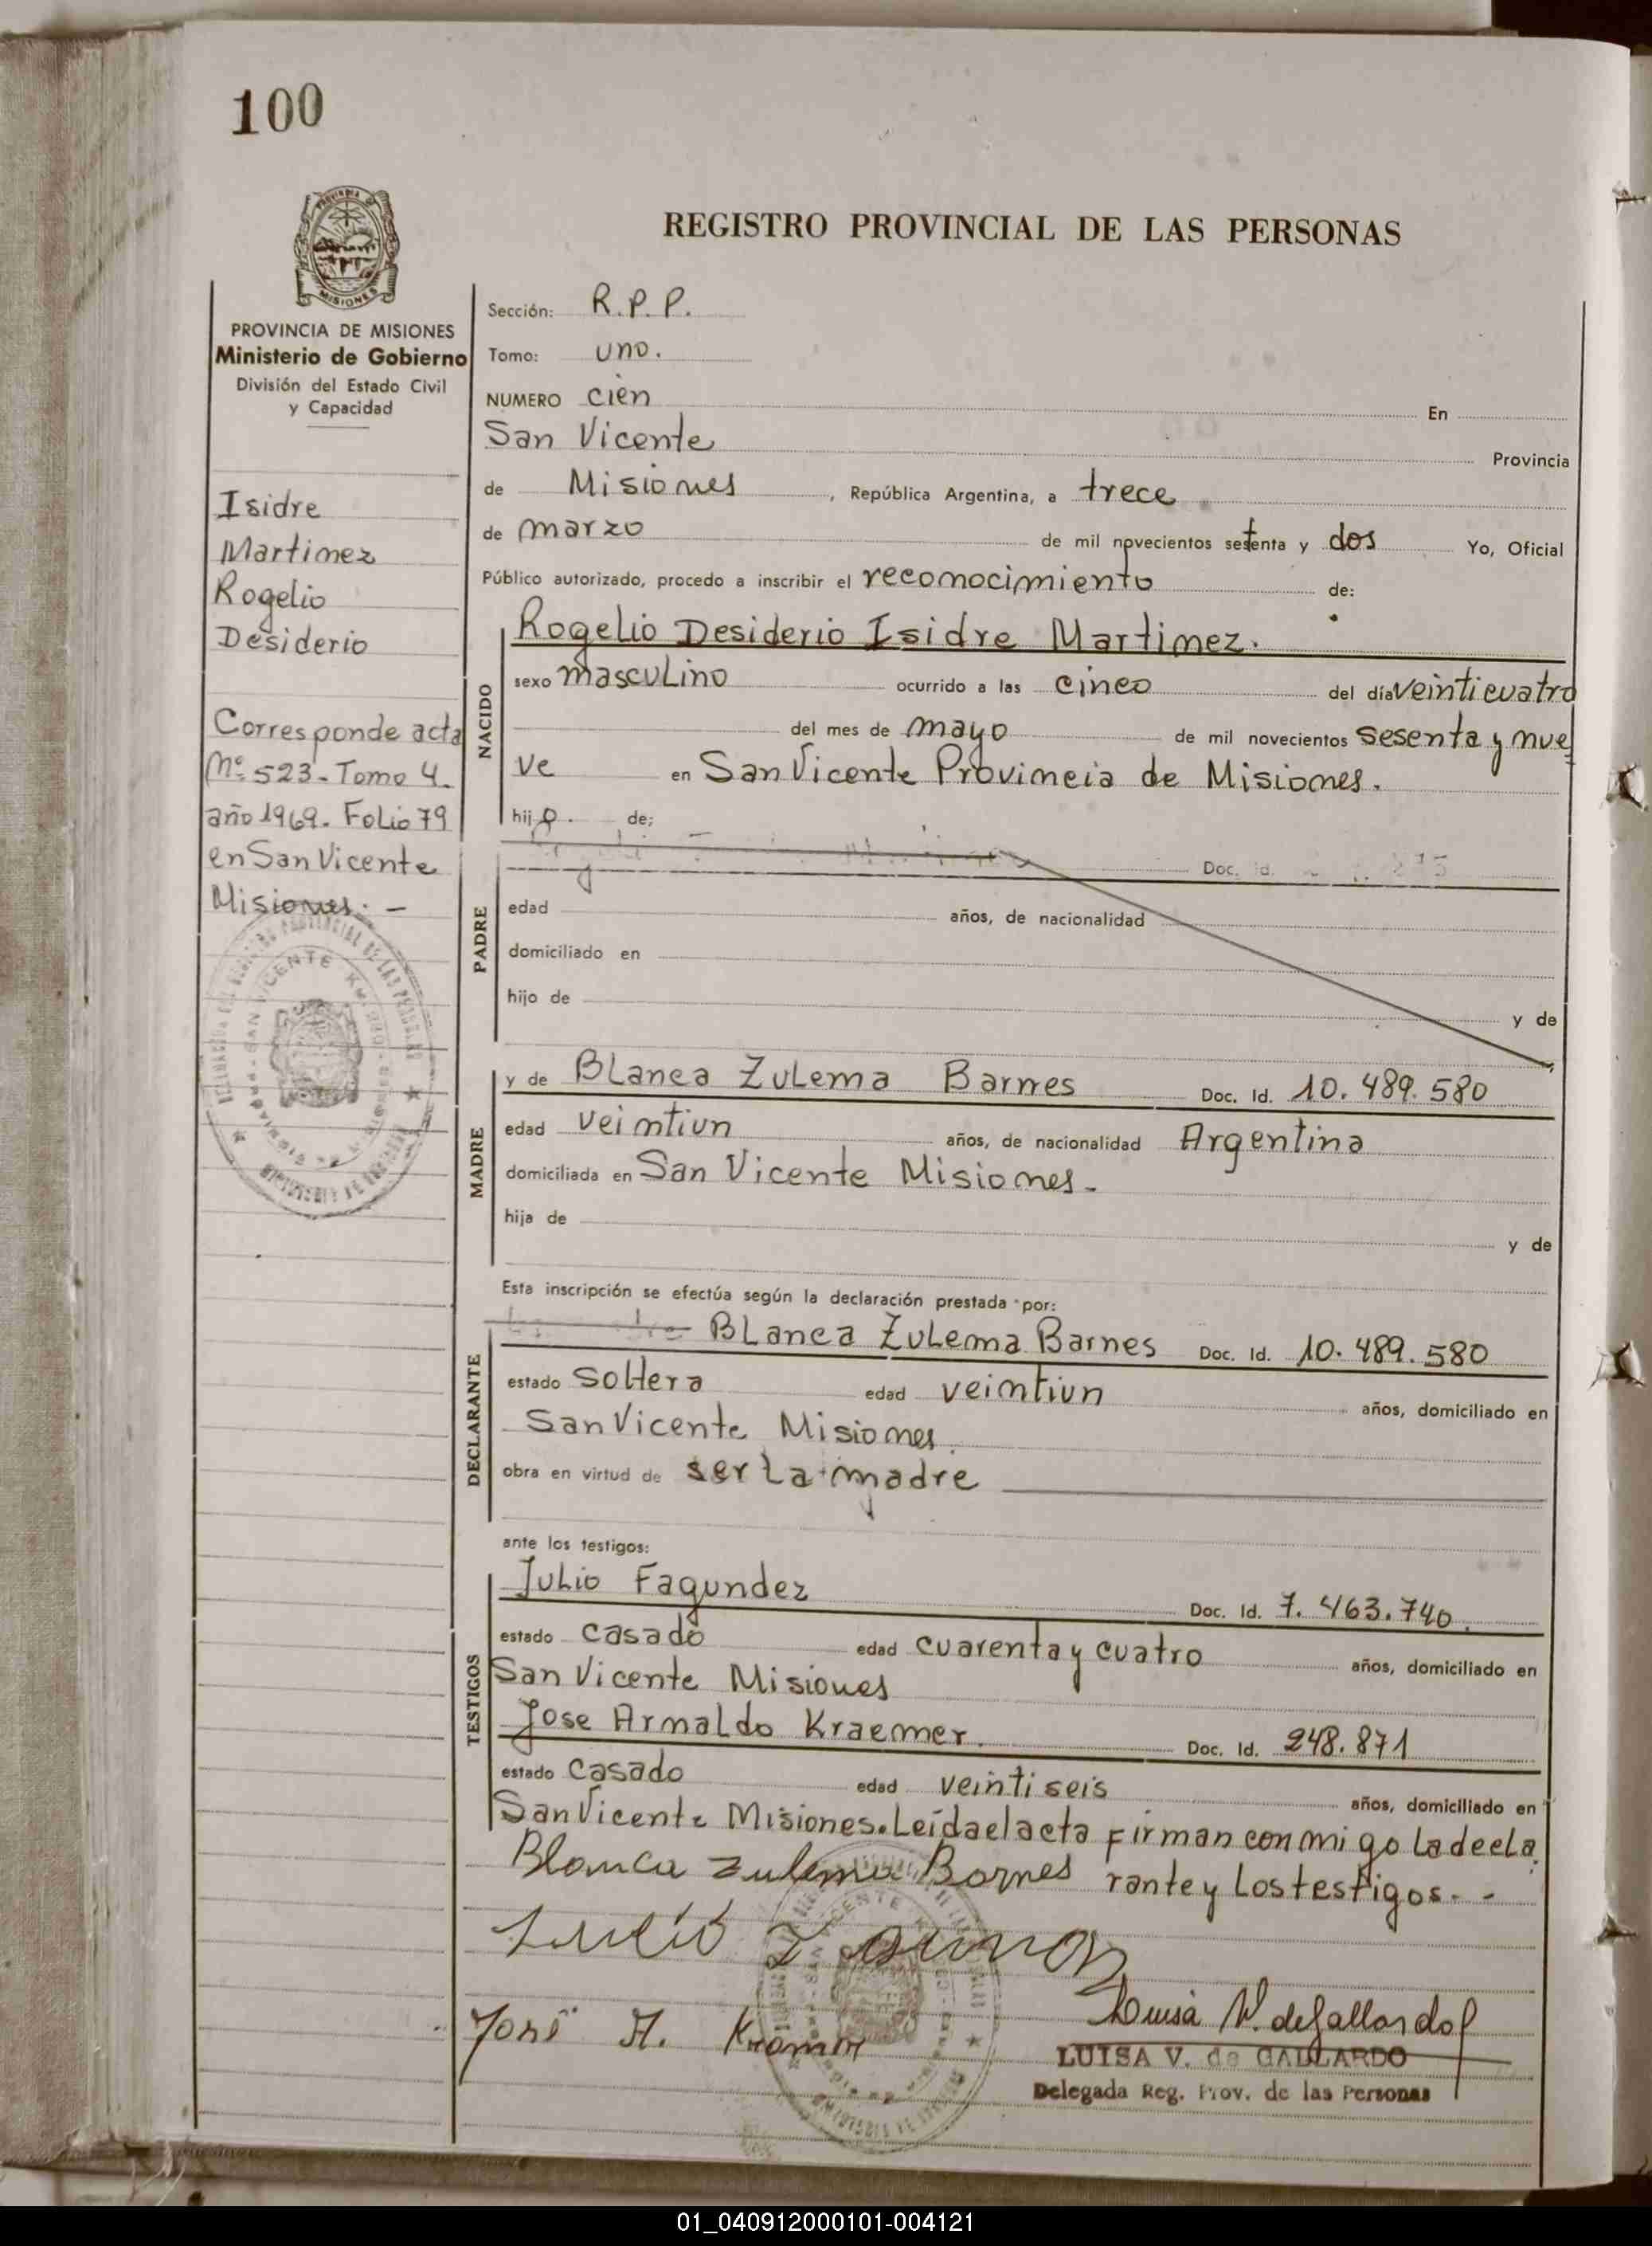 100
REGISTRO PROVINCIAL DE LAS PERSONAS
MISIONES
PROVINCIA DE MISIONES
Ministerio de Gobierno
División del Estado Civil
y Capacidad
Isidre
Martinez
Rogelio
Desiderio
Corresponde acta
Nº 523-Tomo 4.
año 1969. Folio 79
en San Vicente
Misiones. -
Sección: R.P.P.
Tomo: uno.
NUMERO cien En
San Vicente Provincia
de Misiones, República Argentina, a trece
de marzo de mil novecientos setenta y dos Yo, Oficial
Público autorizado, procedo a inscribir el reconocimiento de:
NACIDO
Rogelio Desiderio Isidre Martinez.
sexo masculino ocurrido a las cinco del día veinticuatro
del mes de mayo de mil novecientos sesenta y nue
ve en San Vicente Provincia de Misiones.
hijo. de;
PADRE
Doc. Id.
edad años, de nacionalidad
domiciliado en
hijo de y de
MADRE
y de Blanca Zulema Barnes Doc. Id. 10.489.580
edad veintiun años, de nacionalidad Argentina
domiciliada en San Vicente Misiones-
hija de y de
Esta inscripción se efectúa según la declaración prestada por:
DECLARANTE
Blanca Zulema Barnes Doc. Id. 10.489.580
estado soltera edad veintiun años, domiciliado en
San Vicente Misiones.
obra en virtud de ser la madre
ante los testigos:
TESTIGOS
Julio Fagundez Doc. Id. 7.463.740.
estado casado edad cuarenta y cuatro años, domiciliado en
San Vicente Misiones
Jose Arnaldo Kraemer. Doc. Id. 248.871
estado casado edad veintiseis años, domiciliado en
San Vicente Misiones. Leída el acta firman conmigo la decla
Blanca Zulema Barnes rante y los testigos. -
José A. Kramer
Luisa V. de Gallardo
LUISA V. de GALLARDO
Delegada Reg. Prov. de las Personas
01_040912000101-004121